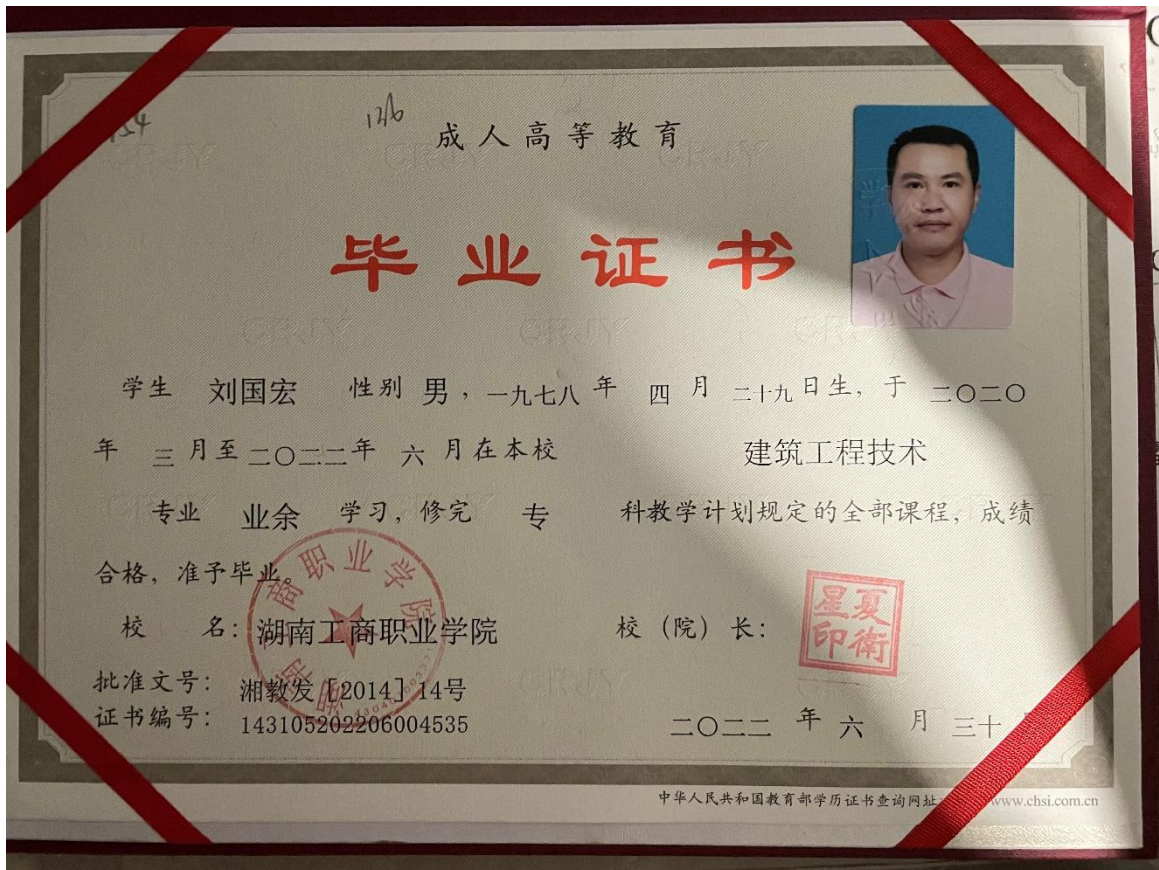 136
成人高等教育
毕业证书
学生 刘国宏 性别 男，一九七八年 四 月 二十九日生，于 二〇二〇
年 三 月至二〇二二年 六 月在本校 建筑工程技术
专业 业余 学习，修完 专 科教学计划规定的全部课程，成绩
合格，准予毕业。
校 名：湖南工商职业学院 校（院）长：
星夏
印衛
批准文号：湘教发［2014］14号
证书编号：143105202206004535
二〇二二 年 六 月 三十
中华人民共和国教育部学历证书查询网址 www.chsi.com.cn
CRJY
商职业学院